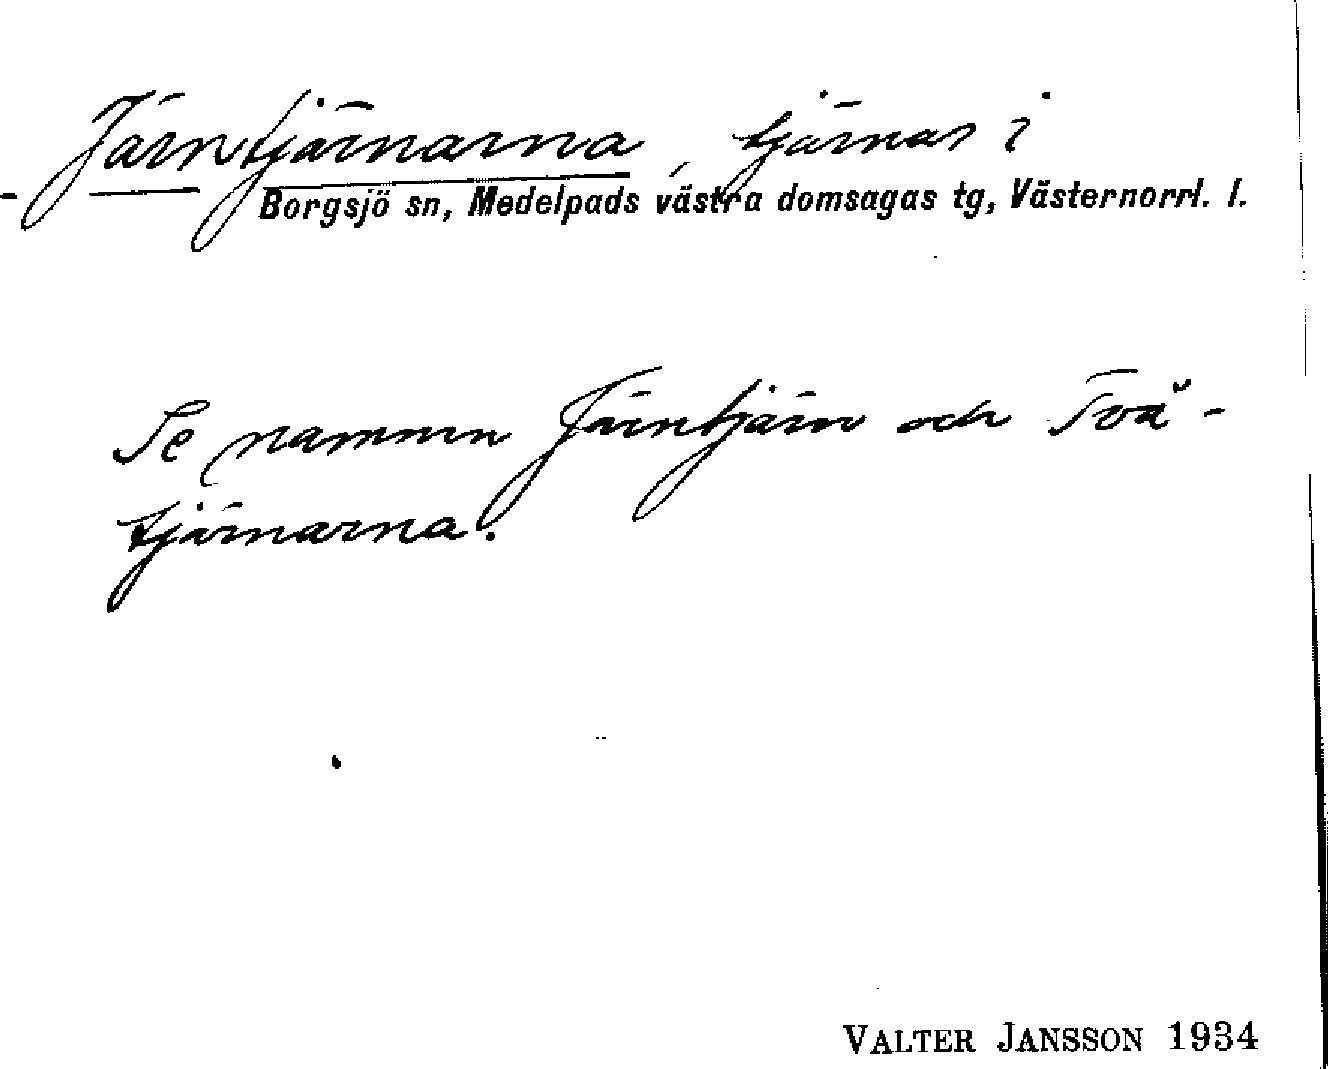 Järntjärnarna, tjärnar i
Borgsjö sn, Medelpads västra domsagas tg, Västernorrl. l.
Se namnen Järntjärn och Två-
tjärnarna.
VALTER JANSSON 1934